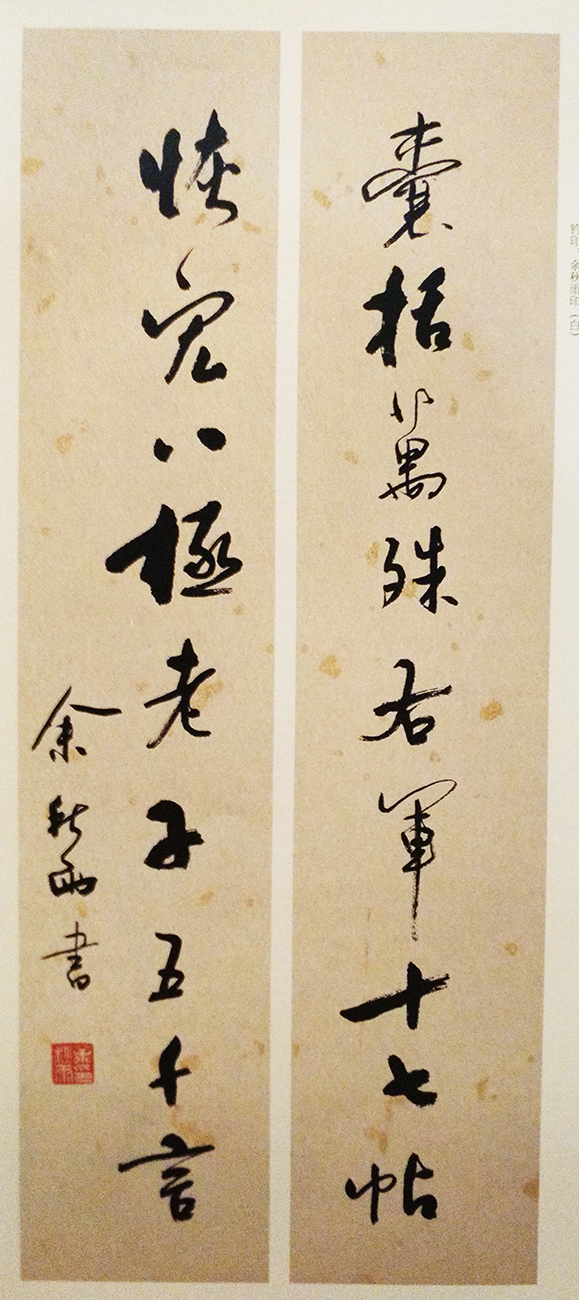 钤印：余秋雨印（白）
囊括萬殊右軍十七帖
恢宏八極老子五千言
余秋雨書